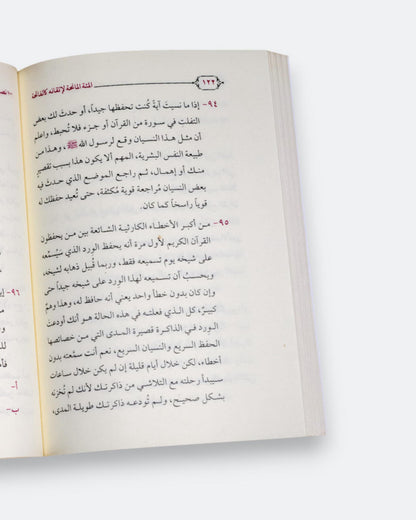 ١٢٢
المئة المانحة لإتقانه كالفاتحة
٩٤- إذا ما نسيتَ آيةً كُنت تحفظها جيداً، أو حدث لك بعض
التفلت في سورة من القرآن أو جزء فلا تُحبط، واعلم
أن مثل هذا النسيان وقع لرسول الله ﷺ، وهذا من
طبيعة النفس البشرية، المهم ألا يكون هذا بسبب تقصير
منك أو إهمال، ثم راجع الموضع الذي حدث فيه
بعض النسيان مُراجعة قوية مُكثفة، حتى تُعيد حفظك له
قوياً راسخاً كما كان.
٩٥- من أكبر الأخطاء الكارثية الشائعة بين من يحفظون
القرآن الكريم لأول مرة أنه يحفظ الورد الذي سيُسمِّعه
على شيخه يوم تسميعه فقط، وربما قُبيل ذهابه لشيخه،
ويحسبُ أن تسميعه لهذا الورد على شيخه جيداً حتى
وإن كان بدون خطأ واحد يعني أنه حافظ له، وهذا وهمٌ
كبيرٌ، كل الذي فعلته في هذه الحالة هو أنك أودعت
الورد في الذاكرة قصيرة المدى التي من خصائصها
الحفظ السريع والنسيان السريع، نعم أنت سمَّعته بدون
أخطاء، لكن خلال أيام قليلة إن لم يكن خلال ساعات
سيبدأ رحلته مع التلاشي من ذاكرتك لأنك لم تُخزنه
بشكل صحيح، ولم تُودعه ذاكرتك طويلة المدى،
٩٦- إ
أ-
ب-